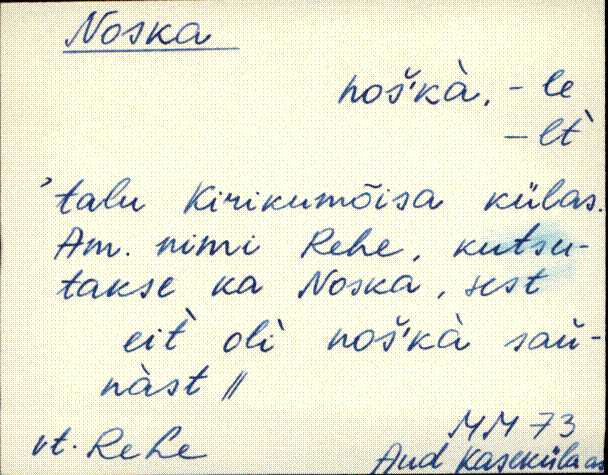 Noska
noš'kà, - le
- lt̀
'talu Kirikumõisa külas.
Am. nimi Rehe, kutsu-
takse ka Noska, sest
eit̀ olì noš'kà saŭ-
nàst //
vt. Rehe
MM 73
Aud Kaseküla